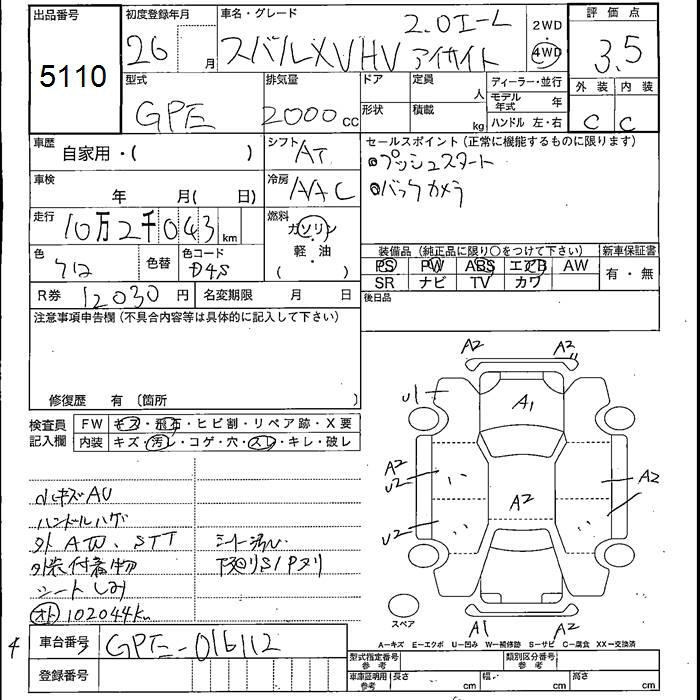 出品番号
5110
初度登録年月
26 月
車名・グレード
2.0i-L
スバルXV HV アイサイト
2WD
4WD
評価点
3.5
型式
GPE
排気量
2000cc
ドア
定員
人
ディーラー・並行
モデル年式 年
形状
積載
kg
ハンドル 左・右
外装 内装
C C
車歴
自家用・( )
シフト
AT
セールスポイント(正常に機能するものに限ります)
プッシュスタート
バックカメラ
車検
年 月( 日)
冷房
AAC
走行
10万2千043km
燃料
ガソリン
軽・油
( )
色
クロ
色替
色コード
D4S
装備品(純正品に限り○をつけて下さい)
新車保証書
PS PW ABS エアB AW
SR ナビ TV カワ
有・無
R券 12030円
名変期限 月 日
後日品
注意事項申告欄(不具合内容等は具体的に記入して下さい)
修復歴 有〔箇所 〕
検査員記入欄
FW キズ・飛石・ヒビ割・リペア跡・X要
内装 キズ・汚レ・コゲ・穴・スレ・キレ・破レ
小キズAU
ハンドルハゲ
外AW、STT
シート汚れ
外装付着物
下廻りS1Pヌリ
シートしみ
オト 102044km
A2 A2
U1
A1
A2
U2
A2
A2
U2
スペア
A1 A2
A-キズ E-エクボ U-凹み W-補修跡 S-サビ C-腐食 XX-交換済
4
車台番号
GPE-016112
登録番号
型式指定番号
参考
類別区分番号
参考
車庫証明用
参考
長さ cm
幅 cm
高さ cm